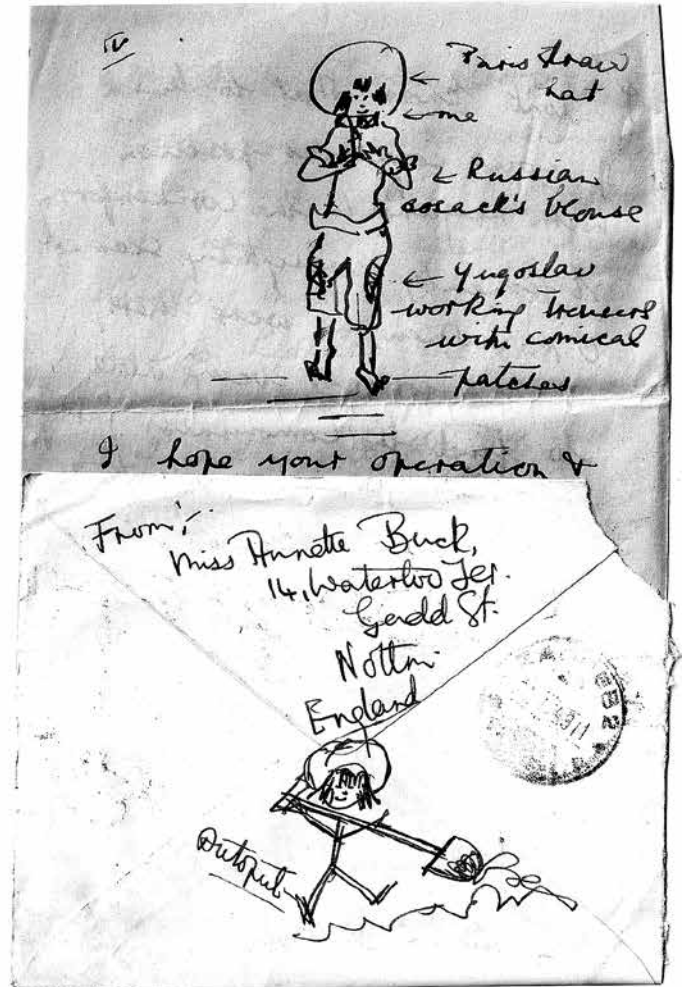 IV
Paris straw
hat
me
Russian
cosack's blouse
Yugoslav
working trousers
with comical
patches
I hope your operation &
From:-
Miss Annette Buck,
14, Waterloo Ter.
St.
Nottm.
England
Autoput